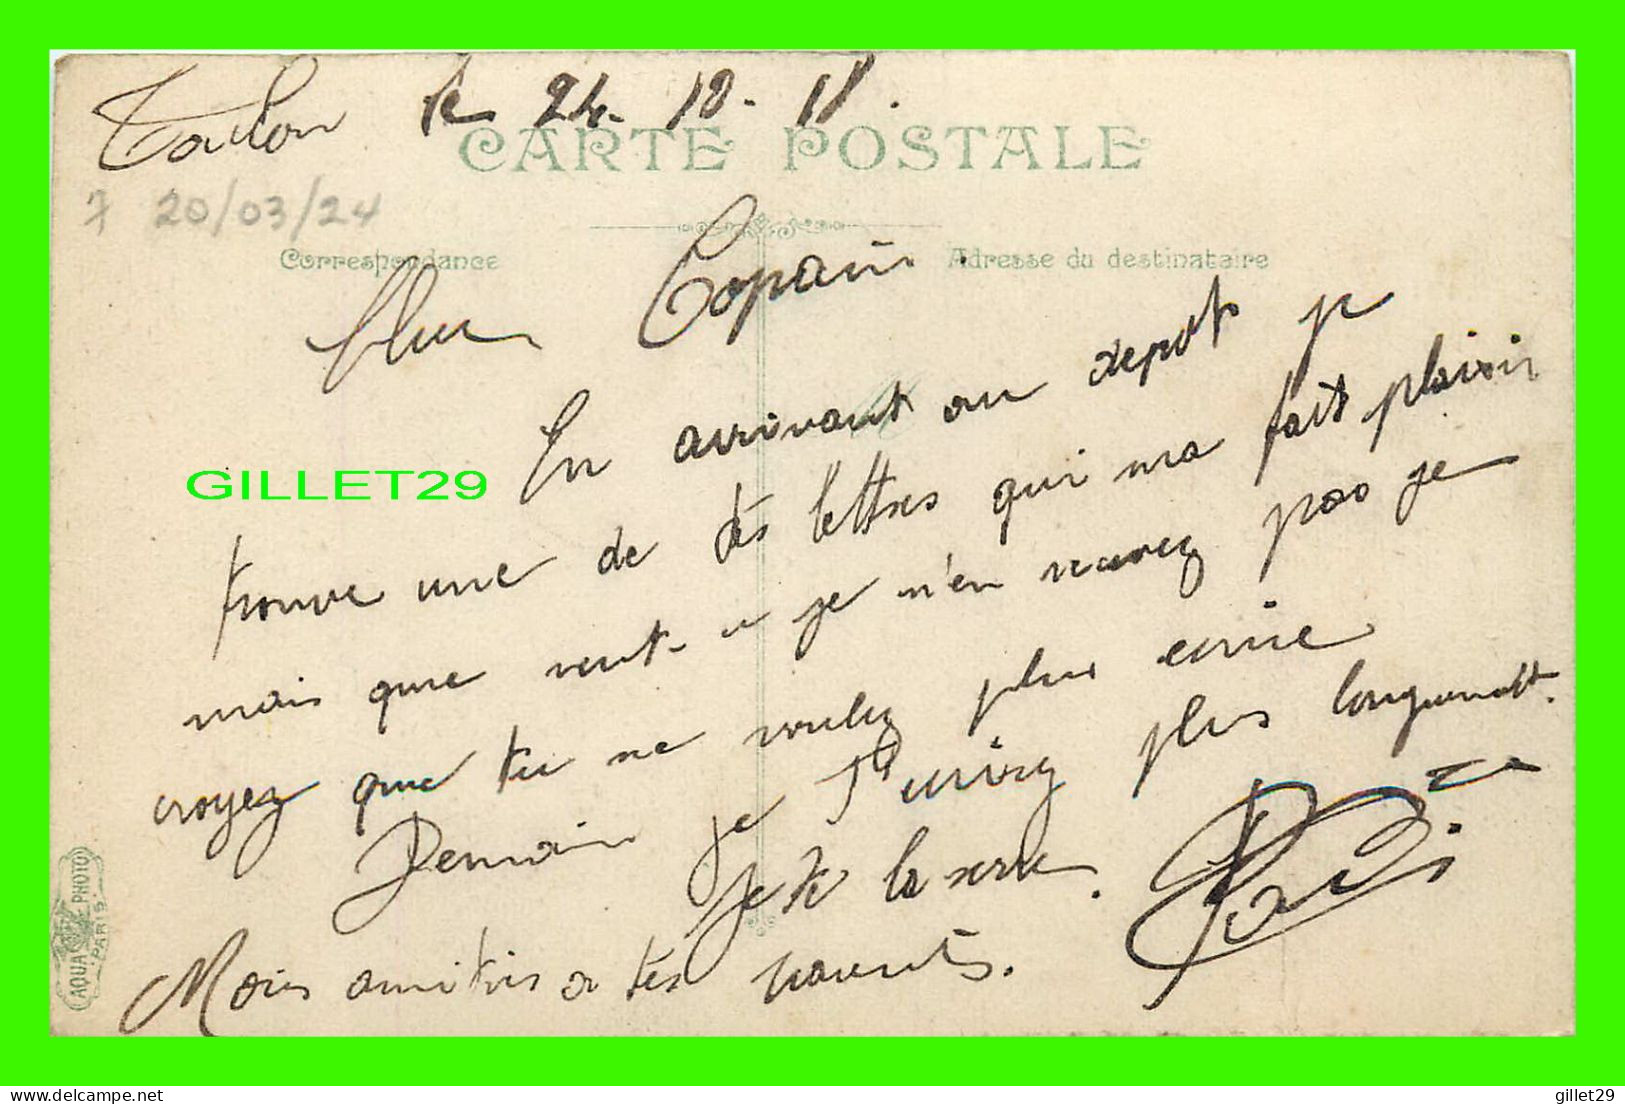 Toulon le 24.10.18.
CARTE POSTALE
7 20/03/24
Correspondance
Adresse du destinataire
Cher Copain.
GILLET29
En arrivant au depot je
trouve une de tes lettres qui ma fait plaisir
mais que veut-u je n'en recevez pas je
croyez que tu ne voulez plus ecrire
Demain je t'ecrirez plus longuement.
Je te la serre.
Mais amitiis a tes parents.
AQUA PHOTO
PARIS
delcampe.net
gillet29